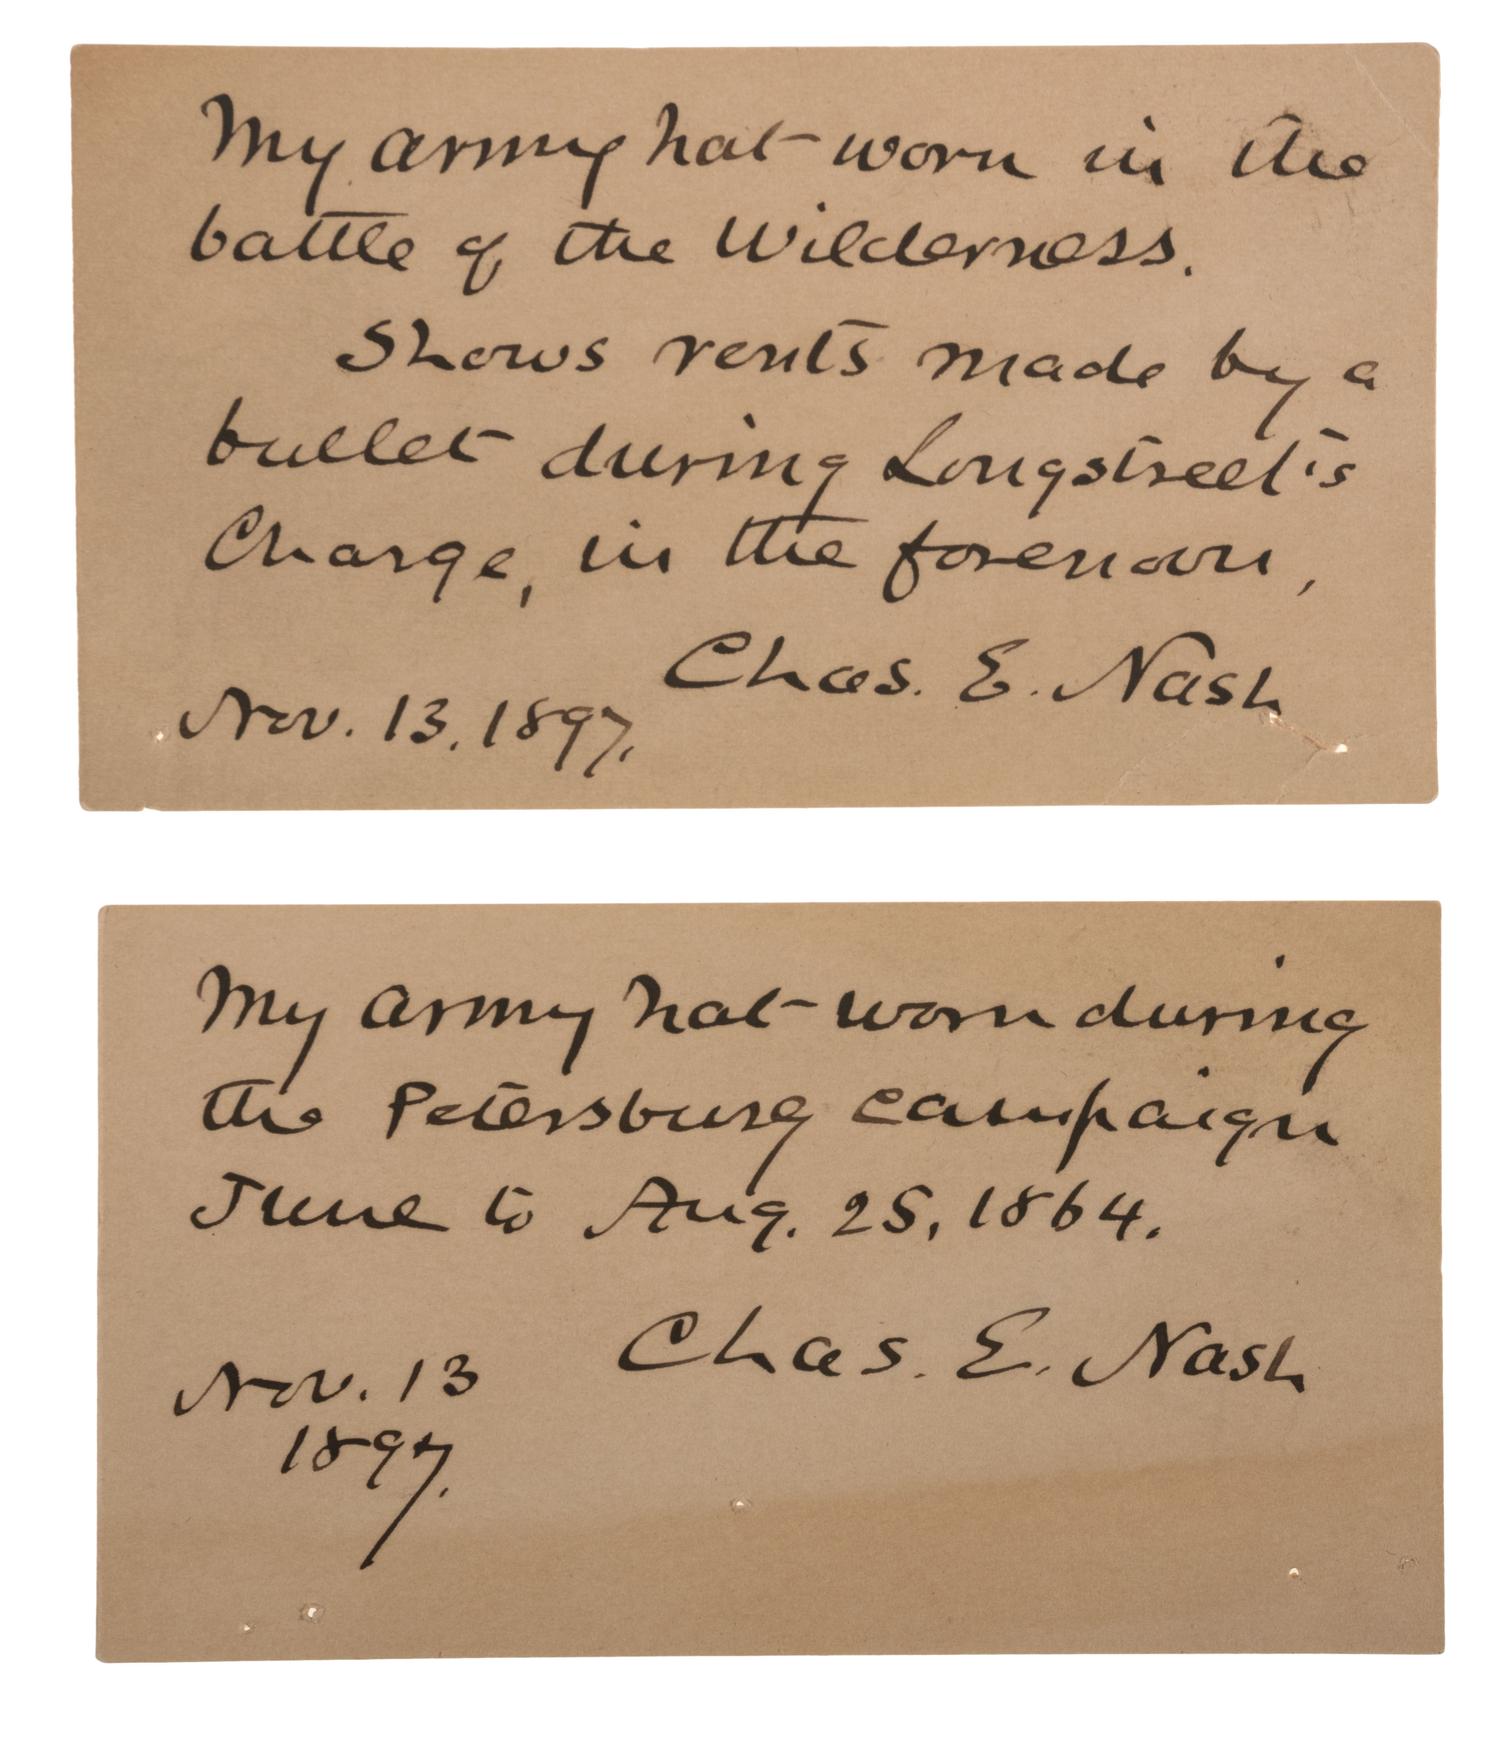 My army hat worn in the
battle of the Wilderness.
Shows rents made by a
bullet during Longstreet's
Charge, in the forenoon,
Chas. E. Nash
Nov. 13. 1897.
My army hat worn during
the Petersburg campaign
June to Aug. 25, 1864.
Chas. E. Nash
Nov. 13
1897.